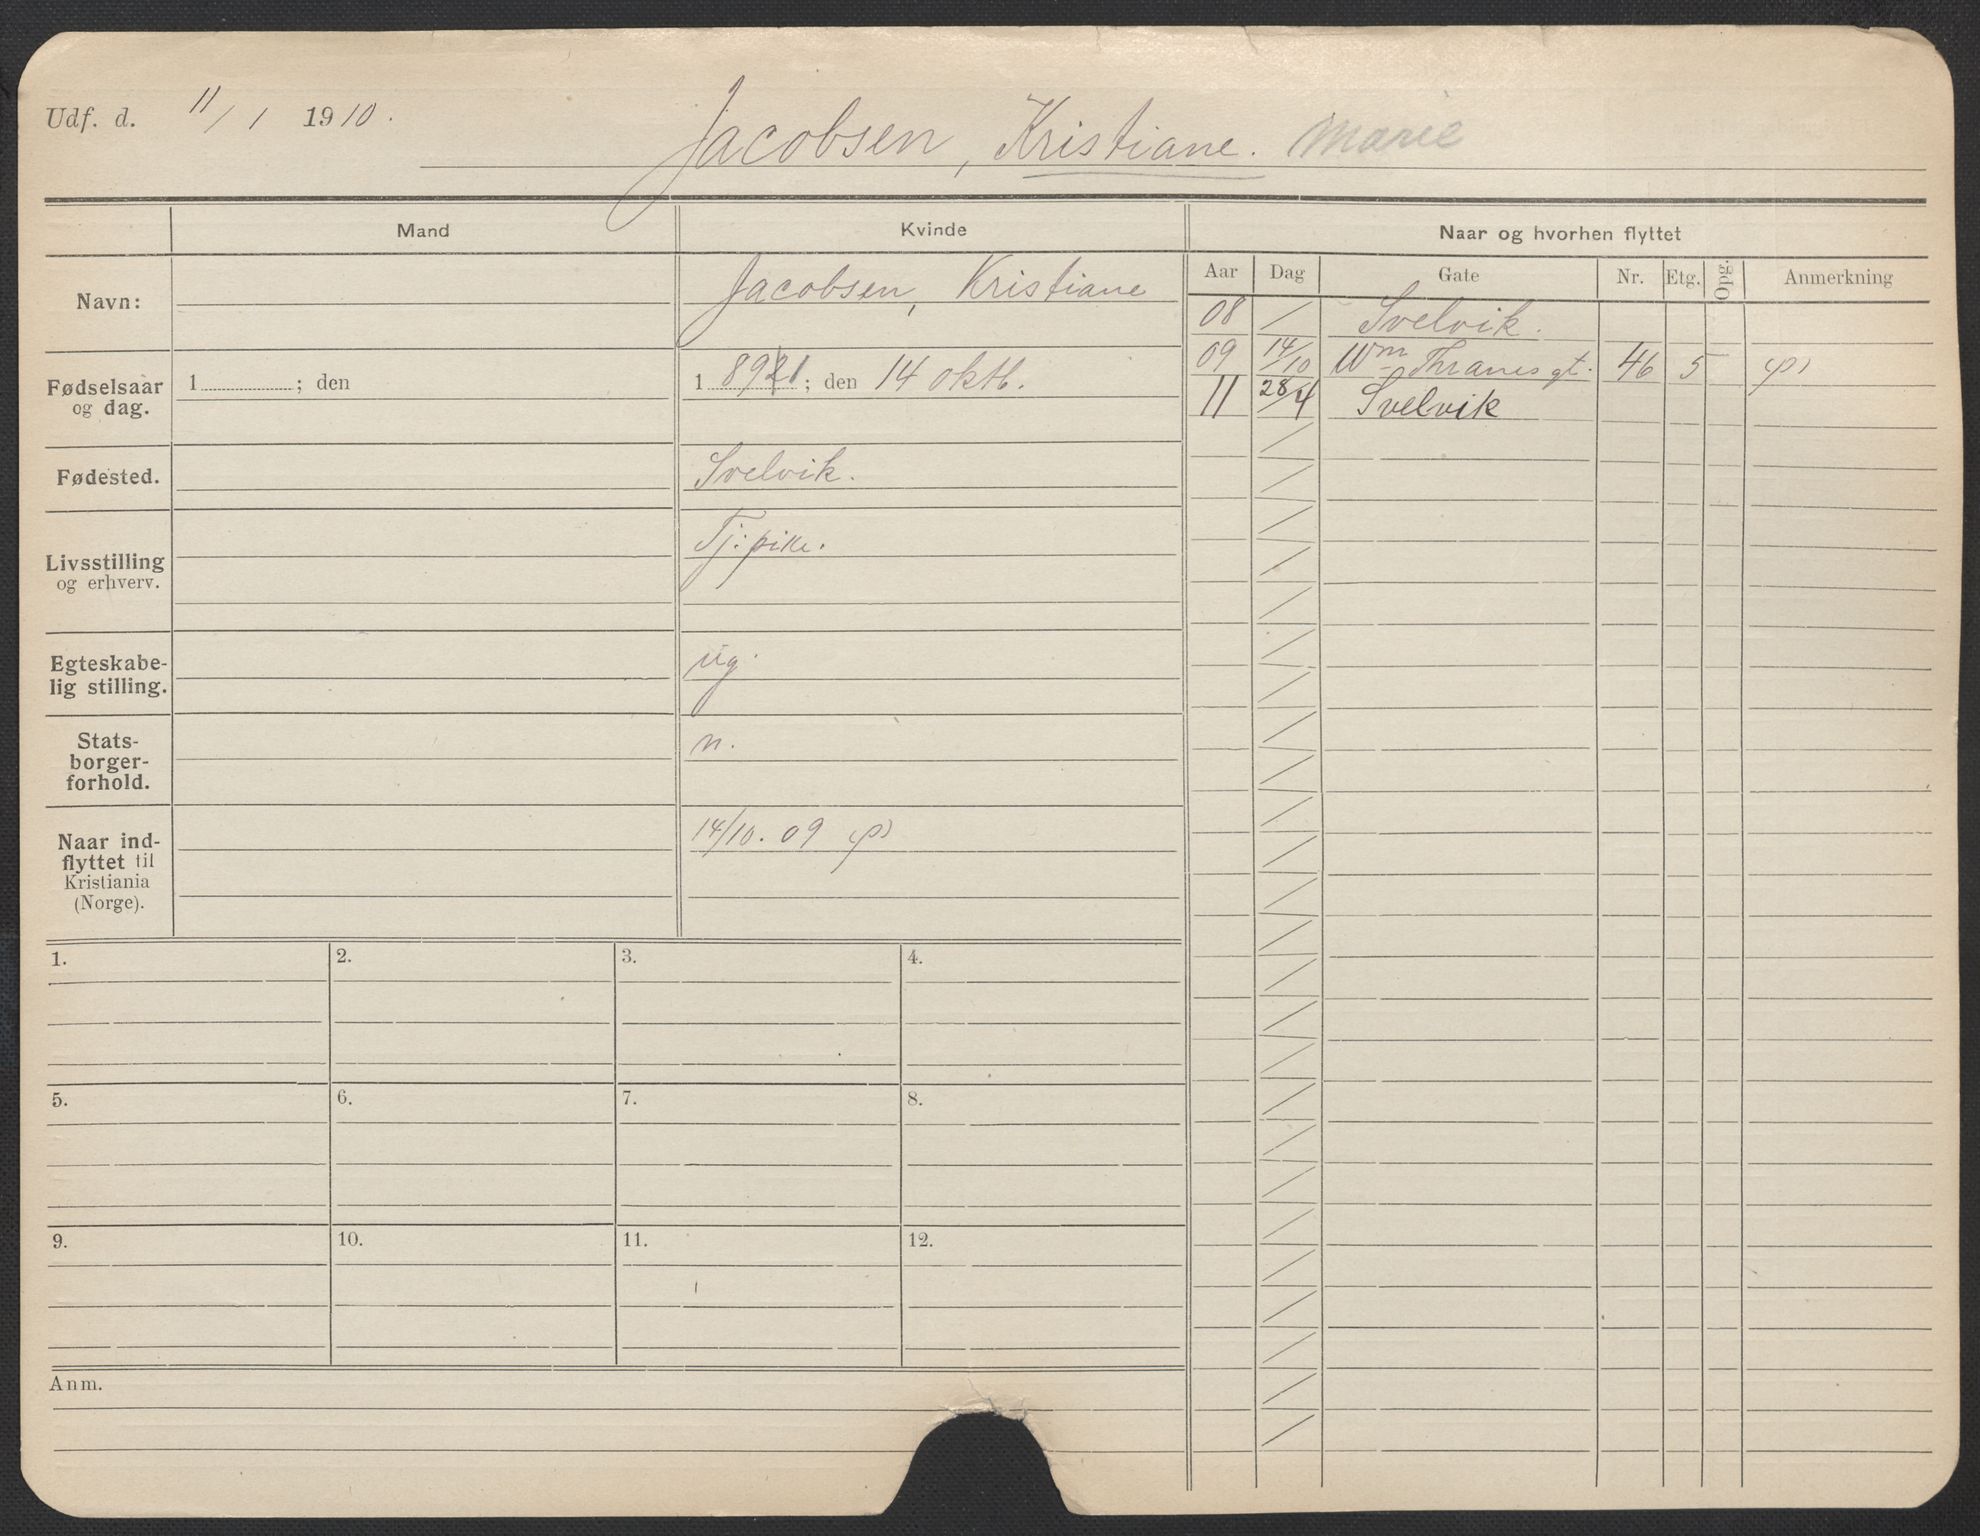 Udf. d. 11/1 1910.
Jacobsen, Kristiane. Marie
Mand
Kvinde
Naar og hvorhen flyttet
Navn:
Jacobsen, Kristiane
Aar Dag Gate Nr. Etg. Opg. Anmerkning
08 / Svelvik.
09 14/10 Wm Thranes gt. 46 5 (p)
11 28/4 Svelvik
Fødselsaar
og dag.
1 ; den
1 ; den 14 oktb.
Fødested.
Svelvik.
Livsstilling
og erhverv.
Tj: pike.
Egteskabe-
lig stilling.
ug.
Stats-
borger-
forhold.
n.
Naar ind-
flyttet til
Kristiania
(Norge).
14/10. 09 (p)
1. 2. 3. 4.
5. 6. 7. 8.
9. 10. 11. 12.
Anm.